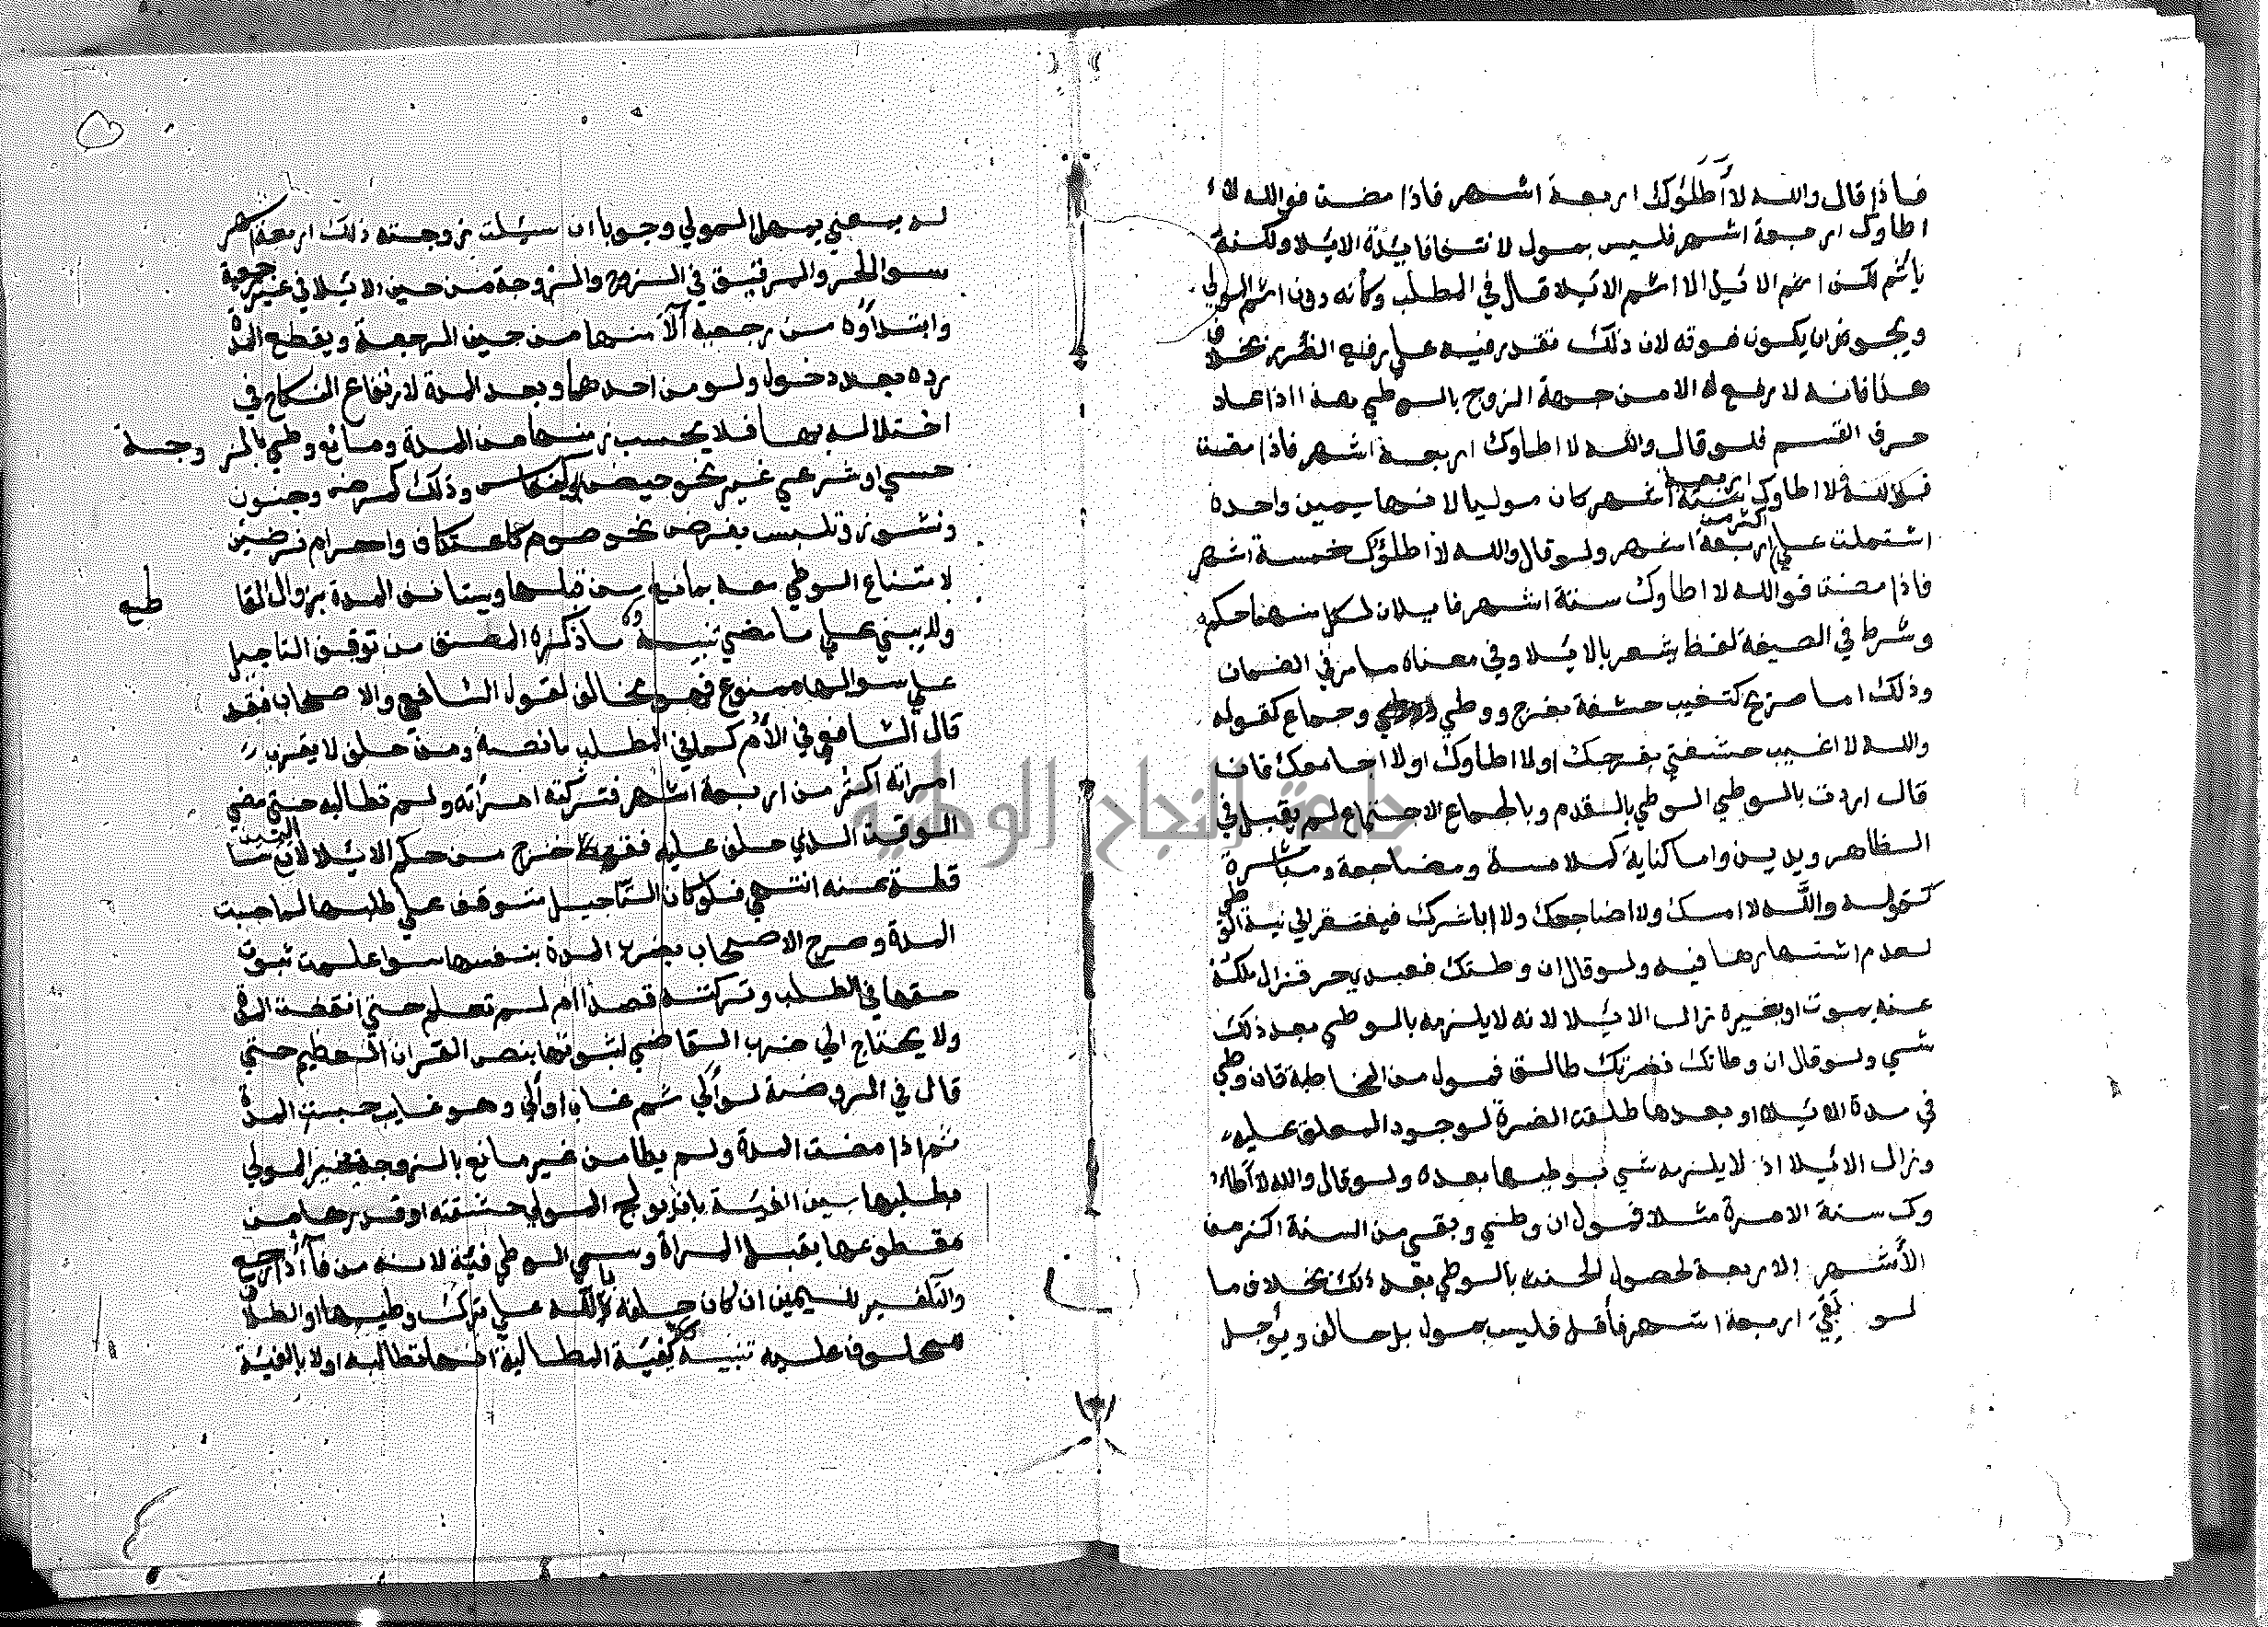 فاذا قال والله لا أطاوك اربعة اشهر فاذا مضت فوالله لا
اطاوك اربعة اشهر فليس بمول لانتفا فايدة الايلا ولكنه
ياثم لكن اثم الايذا لا اثم الايلا قال في المطلب وكانه دون اثم المولي
ويجوز ان يكون فوقه لان ذلك تقدر فيه علي رفع الضرر بخلاف
هذا فانه لا رفع له الا من جهة الزوج بالوطي هذا اذا عاد
حرف القسم فلو قال والله لا اطاوك اربعة اشهر فاذا مضت
فلا اطاوك اربعة اشهر كان موليا لانها يمين واحدة
اشتملت علي اكثر من اربعة اشهر ولو قال والله لا اطاوك خمسة اشهر
فاذا مضت فوالله لا اطاوك ستة اشهر فايلان لكل منهما حكمه
وشرط في الصيغة لفظ يشعر بالايلا وفي معناه ما مر في الضمان
وذلك اما صريح كتغيب حشفة بفرج ووطي وجماع كقوله
والله لا اغيب حشفتي بفرجك او لا اطاوك او لا اجامعك فان
قال اردت بالوطي الوطي بالقدم وبالجماع الاجتماع لم يقبل في
الظاهر ويدين واما كناية كملامسة ومضاجعة ومباشرة
كقوله والله لا امسك ولا اضاجعك ولا اباشرك فيفتقر الي نية الوطي
لعدم اشتهارها فيه ولو قال ان وطئتك فعبدي حر فزال ملكه
عنه بموت او بغيره زال الايلا لانه لا يلزمه بالوطي بعد ذلك
شي ولو قال ان وطاتك فضرتك طالق فمول من المخاطبة فان وطي
في مدة الايلا او بعدها طلقت الضرة لوجود المعلق عليه
وزال الايلا اذ لا يلزمه شي بوطيها بعده ولو قال والله لا أطا
وك سنة الا مرة مثلا فمول ان وطي وبقي من السنة اكثر من
الأشهر الاربعة لحصول الحنث بالوطي بعد ذلك بخلاف ما
لو بَقِيَ اربعة اشهر فأقل فليس بمول بل حالف ويؤجل
له يعني يمهل المولي وجوبا ان سيلت زوجته ذلك اربعة اشهر
سوا الحر والرقيق في الزوج والزوجة من حين الايلا في غير رجعية
وابتداوه من رجعية آلا منها من حين الرجعة ويقطع المدة
ردة بعد دخول ولو من احدهما وبعد المدة لارتفاع النكاح في
اختلاله بها فلا يحسب زمنها من المدة ومانع وطي بالزوجة
حسي او شرعي غير نحو حيض كنفاس وذلك كمرض وجنون
ونشوز وتلبس بفرض نحو صوم كاعتكاف واحرام فرضين
لامتناع الوطي معه بمانع من قبلها وتستانف المدة بزوال القاطع
ولا يبني علي ما مضي تنبيه ما ذكره المصنف من توقف التاجيل
علي سوالها ممنوع فهو مخالف لقول الشافعي والاصحاب فقد
قال الشافعي في الأم كما في المطلب ما نصه ومن حلف لا يقرب
امراته اكثر من اربعة اشهر فتركته امراته ولم تطالبه حتي مضي
الوقت الذي حلف عليه فقد خرج من حكم الايلا لان اليمين سا
قطة عنه انتهي فلو كان التاجيل متوقف علي طلبها لما حسبت
المدة وصرح الاصحاب بضرب المدة بنفسها سوا علمت ثبوت
حقها في الطلب وتركته قصدا ام لم تعلم حتي انقضت المدة
ولا يحتاج الي ضرب القاضي لثبوتها بنص القران العظيم حتي
قال في الروضة لو آلي ثم غاب او آلي وهو غايب حسبت المدة
ثم اذا مضت المدة ولم يطا من غير مانع بالزوجة يخير المولي
بطلبها بين الفيئة بان يولج المولي حشفته او قدرها من
مقطوعها بقبل المراة وسمي الوطي فيئة لانه من فآ اذا رجع
والتكفير لليمين ان كان حلفه بالله علي ترك وطيها او الطلاق
محلوف عليه تنبيه كيفية المطالبة انها تطالبه اولا بالفيئة